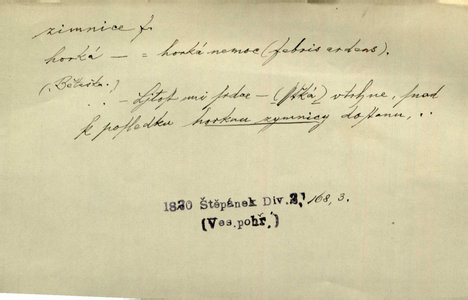 zimnice f.
horká — = horká nemoc (febris ardens).
(Bětuška.)
.. — Lítost mi srdce — (stká) vtrhne, snad
k posledku horkau zymnicy dostanu, ..
1830 Štěpánek Div. 2, 168, 3.
(Ves. pohř.)